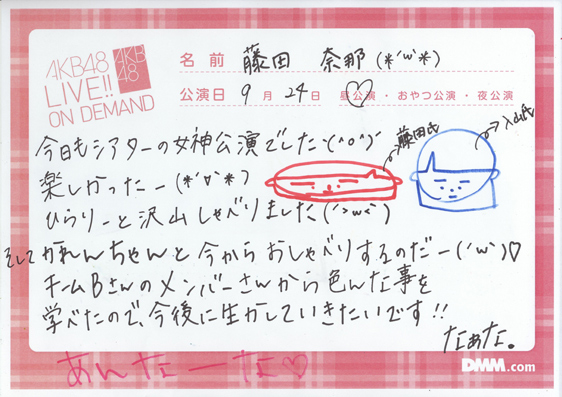 AKB48
LIVE!!
ON DEMAND
AKB
48
名前 藤田 奈那(*´w`*)
公演日 9月24日 昼公演・おやつ公演・夜公演
今日もシアターの女神公演でした(^o^)
楽しかったー(*´∀`*)
藤田氏
入山氏
ひらりーと沢山しゃべりました(´>w<`)
そしてかれんちゃんと今からおしゃべりするのだー(´w`)♡
チームBさんのメンバーさんから色んな事を
学べたので、今後に生かしていきたいです!!
なぁな。
あんなーな♡
DMM.com